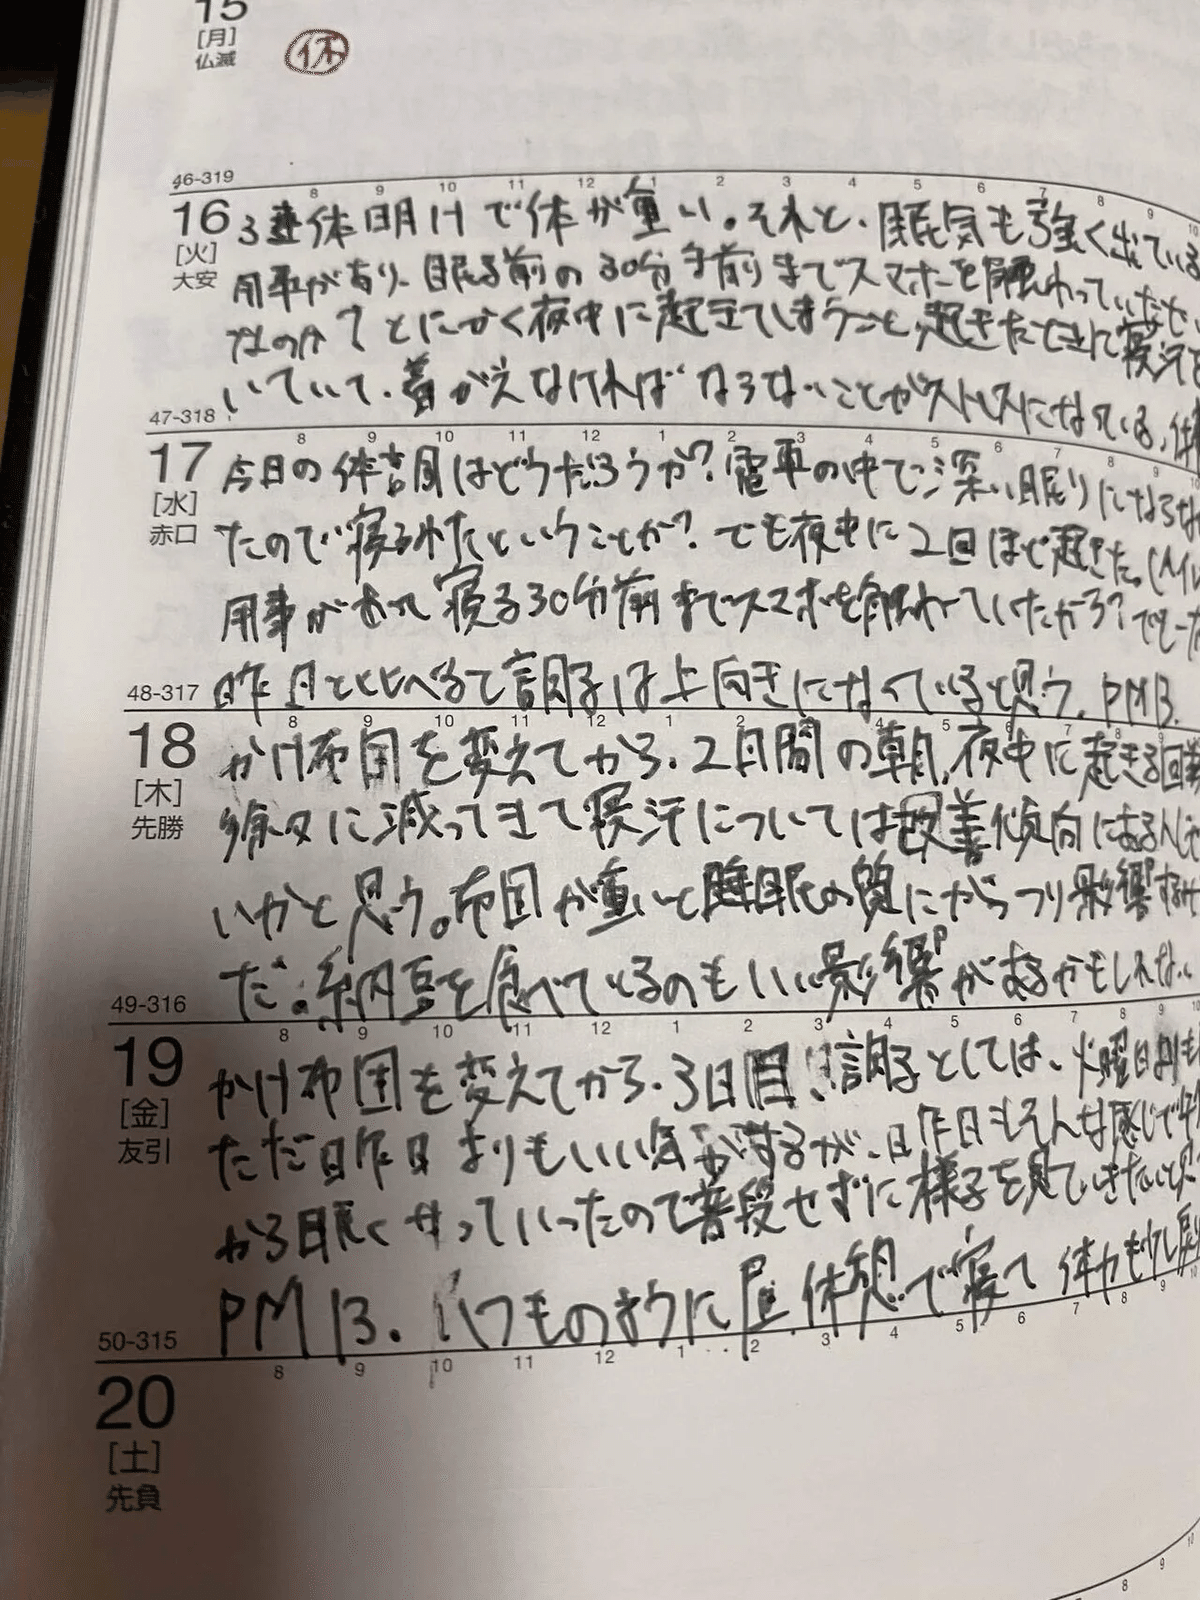 15
[月]
仏滅
休
46-319
8 9 10 11 12 1 2 3 4 5 6 7 8 9 10
16
[火]
大安
3連休明けで体が重い。それと、眠気も強く出ている
用事があり、眠る前の30分手前までスマホを触わっていたせい
なのか？とにかく夜中に起きてしまうこと、起きたときに寝汗を
いていて、着がえなければならないことがストレスになっている。体
47-318
8 9 10 11 12 1 2 3 4 5 6 7 8 9
17
[水]
赤口
今日の体調はどうだろうか？電車の中で深い眠りにならな
たので寝られたということか？でも夜中に2回ほど起きた。(トイレ
用事があって寝る30分前までスマホを触わっていたから？でも
昨日とくらべると調子は上向きになっていると思う。PM13.
48-317
8 9 10 11 12 1 2 4 5 6 7 8 9
18
[木]
先勝
かけ布団を変えてから、2日間の朝、夜中に起きる回数
徐々に減ってきて寝汗については改善傾向にある
いかと思う。布団が重いと睡眠の質にがっつり影響する
だ。納豆を食べているのもいい影響があるかもしれない
49-316
8 9 10 11 12 1 2 3 4 5 6 7 8 9 10
19
[金]
友引
かけ布団を変えてから、3日目、調子としては、火曜日
ただ昨日よりもいい気がするが、昨日もそんな感じで午
から眠くなっていったので普段せずに様子を見ていきたいと思
PM13. いつものように昼休憩で寝て体力も少し
50-315
8 9 10 11 12 1 2 3 4 5 6 7 8 9 10
20
[土]
先負
8 9 10